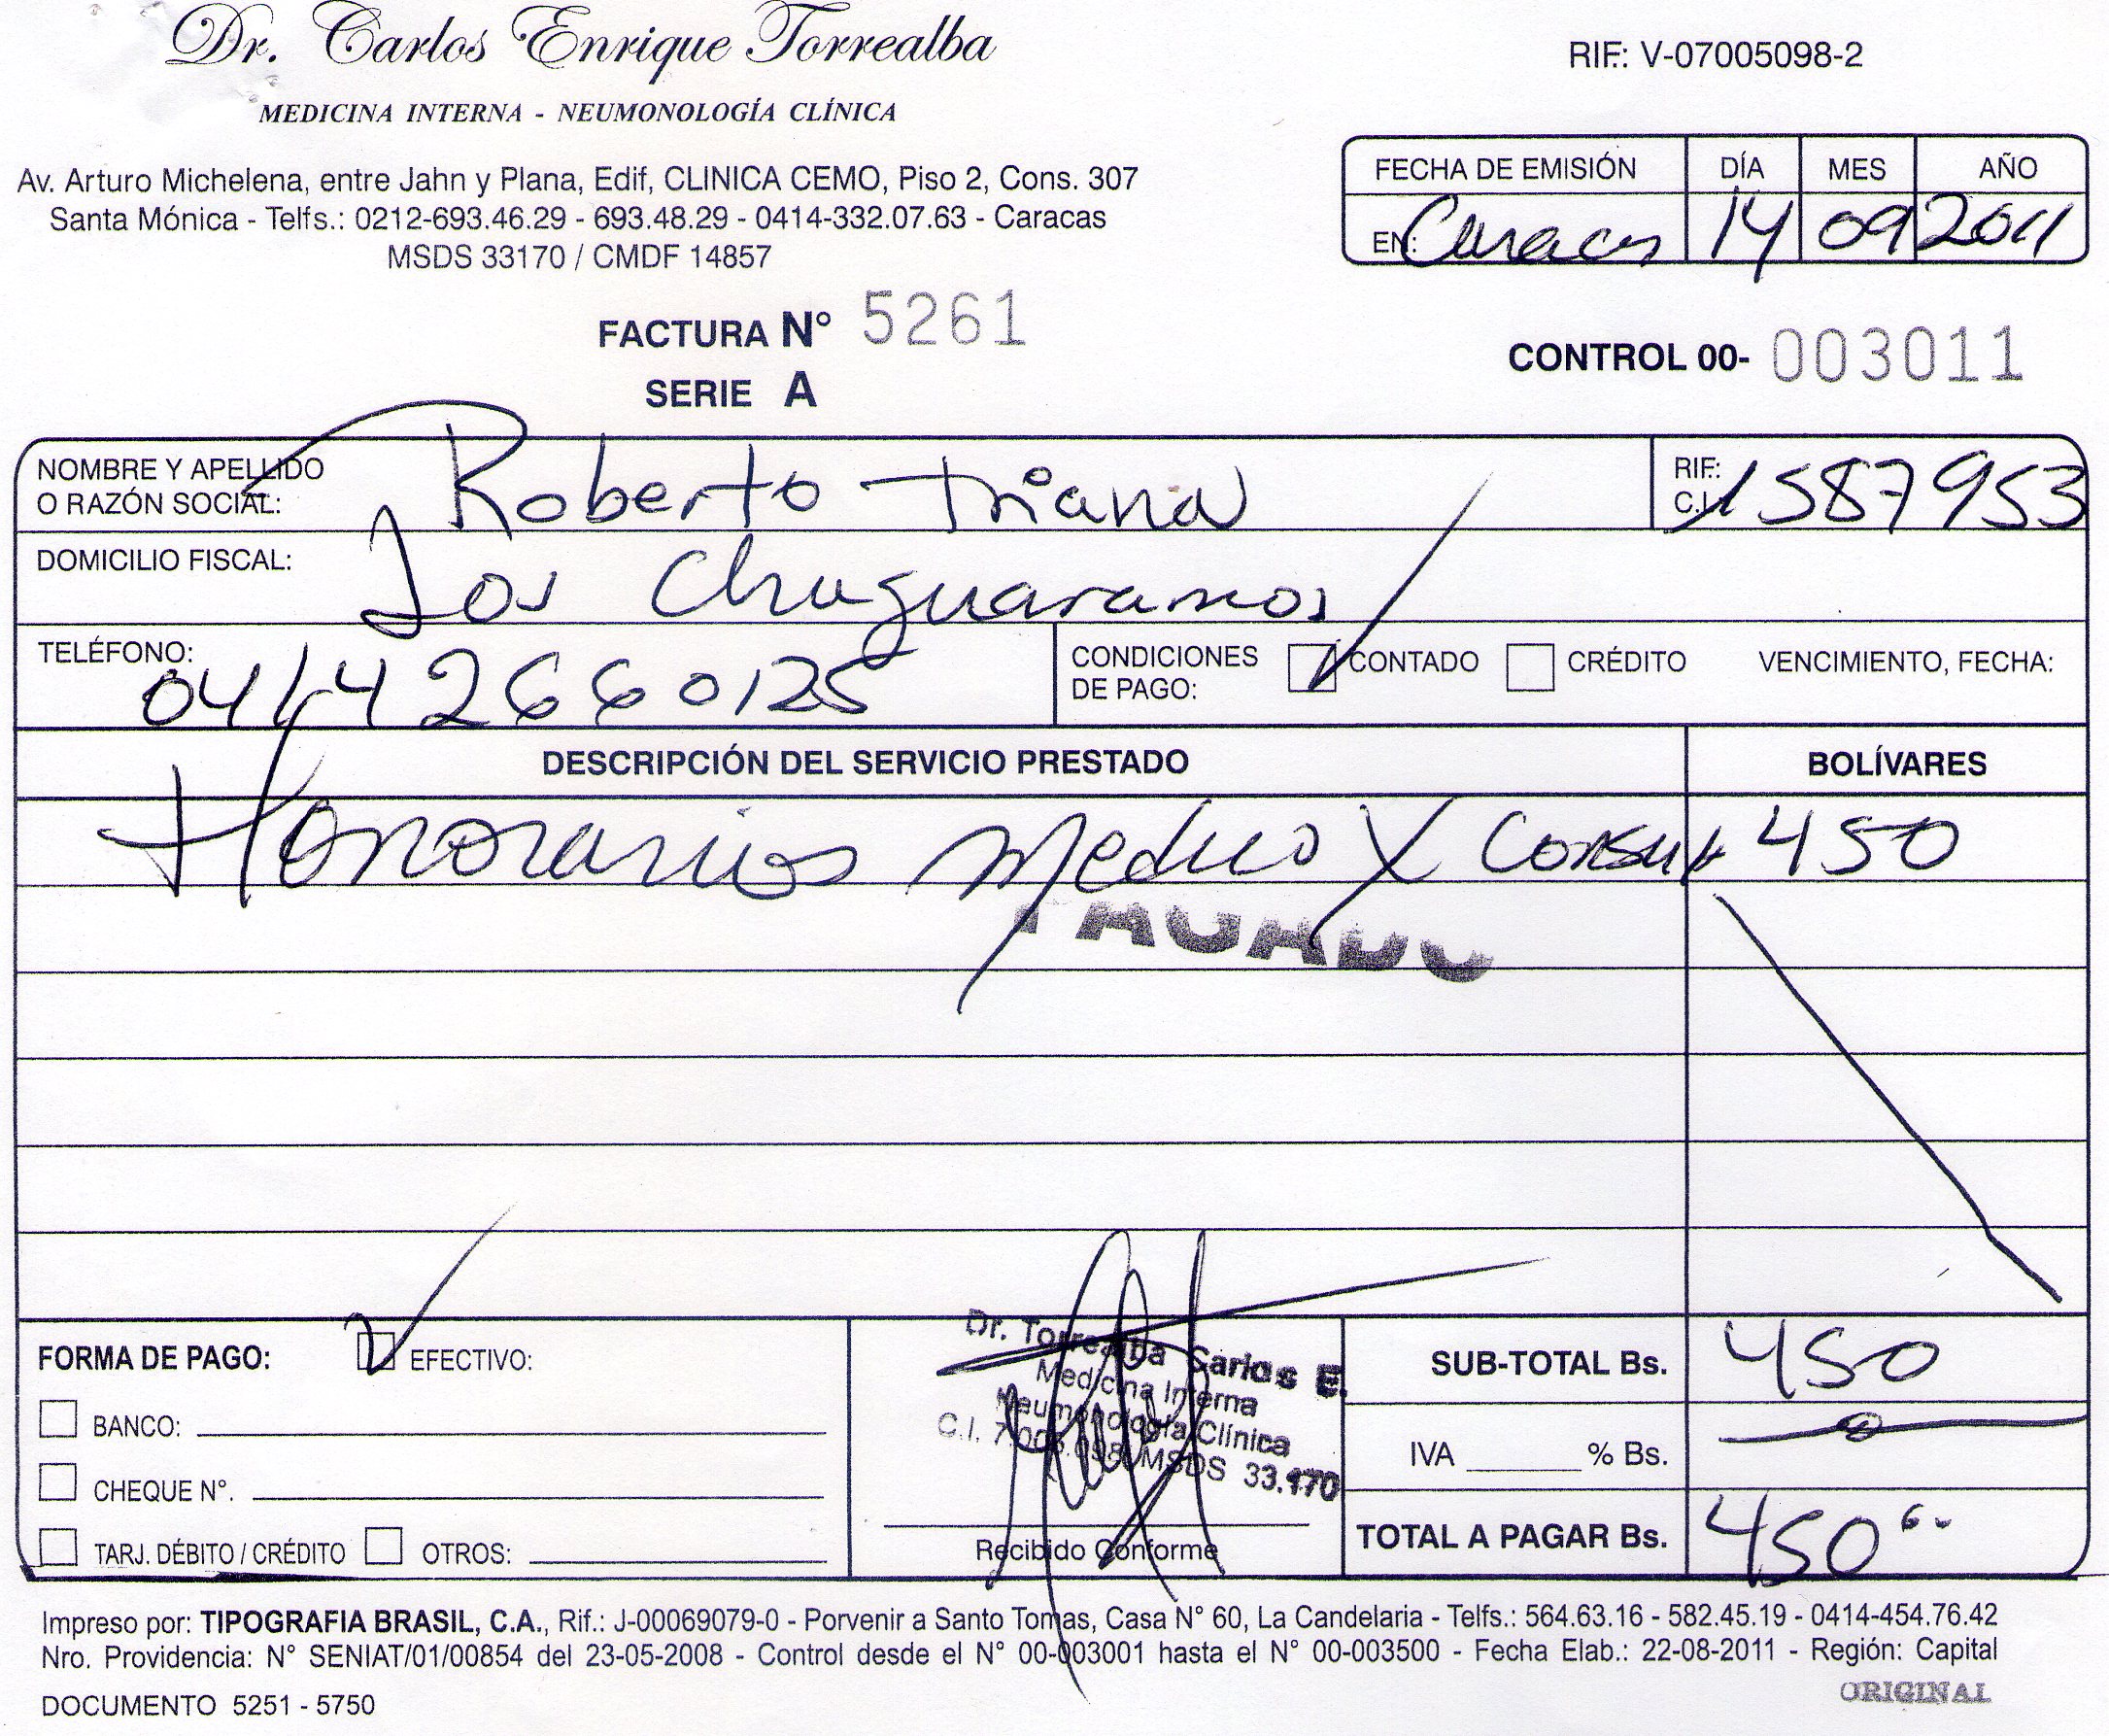 Dr. Carlos Enrique Torrealba
MEDICINA INTERNA - NEUMONOLOGÍA CLÍNICA
RIF: V-07005098-2
Av. Arturo Michelena, entre Jahn y Plana, Edif, CLINICA CEMO, Piso 2, Cons. 307
Santa Mónica - Telfs.: 0212-693.46.29 - 693.48.29 - 0414-332.07.63 - Caracas
MSDS 33170 / CMDF 14857
FECHA DE EMISIÓN DÍA MES AÑO
EN: Caracas 14 09 2011
FACTURA N° 5261
SERIE A
CONTROL 00- 003011
NOMBRE Y APELLIDO
O RAZÓN SOCIAL: Roberto Triana
RIF:
C.I. 1587953
DOMICILIO FISCAL: Los Chaguaramos
TELÉFONO: 0414 2660125
CONDICIONES
DE PAGO: CONTADO CRÉDITO VENCIMIENTO, FECHA:
DESCRIPCIÓN DEL SERVICIO PRESTADO BOLÍVARES
Honorarios Medico X Consulta 450
PAGADO
FORMA DE PAGO: EFECTIVO:
BANCO:
CHEQUE N°.
TARJ. DÉBITO / CRÉDITO OTROS:
Dr. Torrealba Carlos E.
Medicina Interna
Neumonología Clínica
C.I. 7.005.098 MSDS 33.170
Recibido Conforme
SUB-TOTAL Bs. 450
IVA % Bs.
TOTAL A PAGAR Bs. 450
Impreso por: TIPOGRAFIA BRASIL, C.A., Rif.: J-00069079-0 - Porvenir a Santo Tomas, Casa N° 60, La Candelaria - Telfs.: 564.63.16 - 582.45.19 - 0414-454.76.42
Nro. Providencia: N° SENIAT/01/00854 del 23-05-2008 - Control desde el N° 00-003001 hasta el N° 00-003500 - Fecha Elab.: 22-08-2011 - Región: Capital
DOCUMENTO 5251 - 5750
ORIGINAL